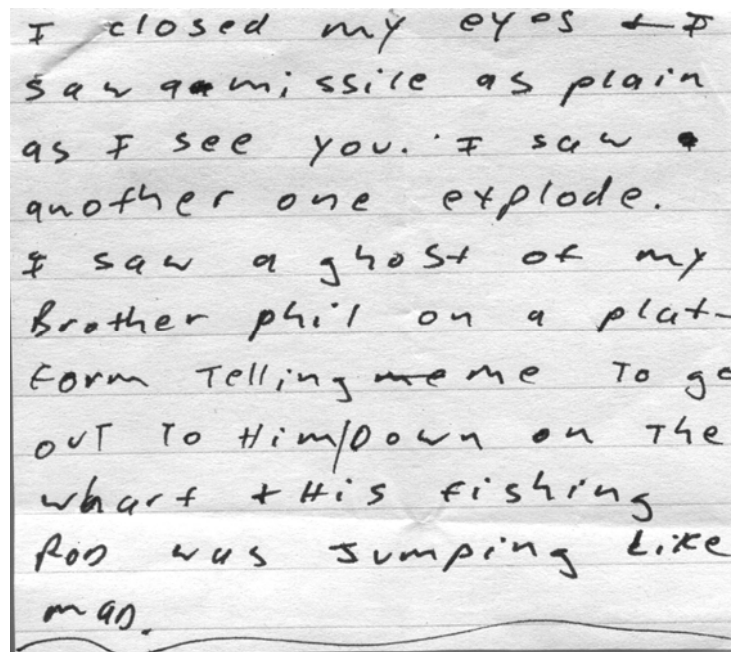 I closed my eyes + I
saw a missile as plain
as I see you. I saw
another one explode.
I saw a ghost of my
Brother phil on a plat-
form Telling me To go
out To Him/Down on The
wharf + His fishing
Rod was Jumping Like
mad.